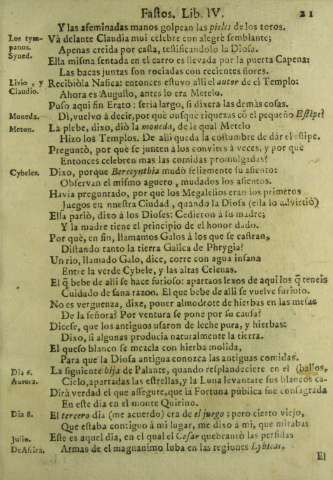 Fastos, Lib. IV. 21
Y las afeminadas manos golpean las pieles de los toros.
Los tym-
panos.
Syned.
Và delante Claudia mui celebre con alegre semblante;
Apenas creida por casta, testificandolo la Diosa.
Ella misma sentada en el carro es llevada por la puerta Capena:
Las bacas juntas son rociadas con recientes flores.
Livio, y
Claudio.
Recibiòla Nasica: entonces estuvo alli el autor de el Templo:
Ahora es Augusto, antes lo era Metelo.
Puso aqui fin Erato: seria largo, si dixera las demàs cosas.
Moneda.
Dì, vuelvo à decir, por què busque riquezas cō el pequeño
Meton.
La plebe, dixo, diò la moneda, de la qual Metelo
Hizo los Templos. De alli queda la costumbre de dàr el
Preguntò, por què se junten à los convites à veces, y por què
Entonces celebren mas las comidas promulgadas?
Cybeles.
Dixo, porque Berecynthia mudò felizmente su asiento:
Observan el mismo aguero, mudados los asientos.
Havia preguntado, por què los Megalesios eran los primeros
Juegos en nuestra Ciudad, quando la Diosa (ella lo advirtiò)
Ella pariò, dixo à los Dioses: Cedieron à su madre;
Y la madre tiene el principio de el honor dado.
Por què, en fin, llamamos Galos à los que se castran,
Distando tanto la tierra Galica de Phrygia?
Un rio, llamado Galo, dice, corre con agua insana
Entre la verde Cybele, y las altas Celenas.
El q̄ bebe de alli se hace furioso: apartaos lexos de aqui los q̄ teneis
Cuidado de sana razon. El que bebe de alli se vuelve furioso.
No es verguenza, dixe, poner almodrote de hierbas en las mesas
De la señora? Por ventura se pone por su causa?
Dicese, que los antiguos usaron de leche pura, y hierbas:
Dixo, si algunas producia naturalmente la tierra.
El queso blanco se mezcla con hierba molida,
Para que la Diosa antigua conozca las antiguas comidas.
Dia 6.
Aurora.
La siguiente hija de Palante, quando resplandeciere en el
Cielo, apartadas las estrellas, y la Luna levantare sus blancos
Dirà verdad el que assegure, que la Fortuna pública fue consagrada
En este dia en el monte Quirino.
Dia 8.
El tercero dia (me acuerdo) era de el juego; pero cierto viejo,
Que estaba contiguo à mi lugar, me dixo à mi, que mirabas
Julio.
De Africa.
Este es aquel dia, en el qual el Cesar quebrantò las perfidas
Armas de el magnanimo Iuba en las regiones Lybicas.
El